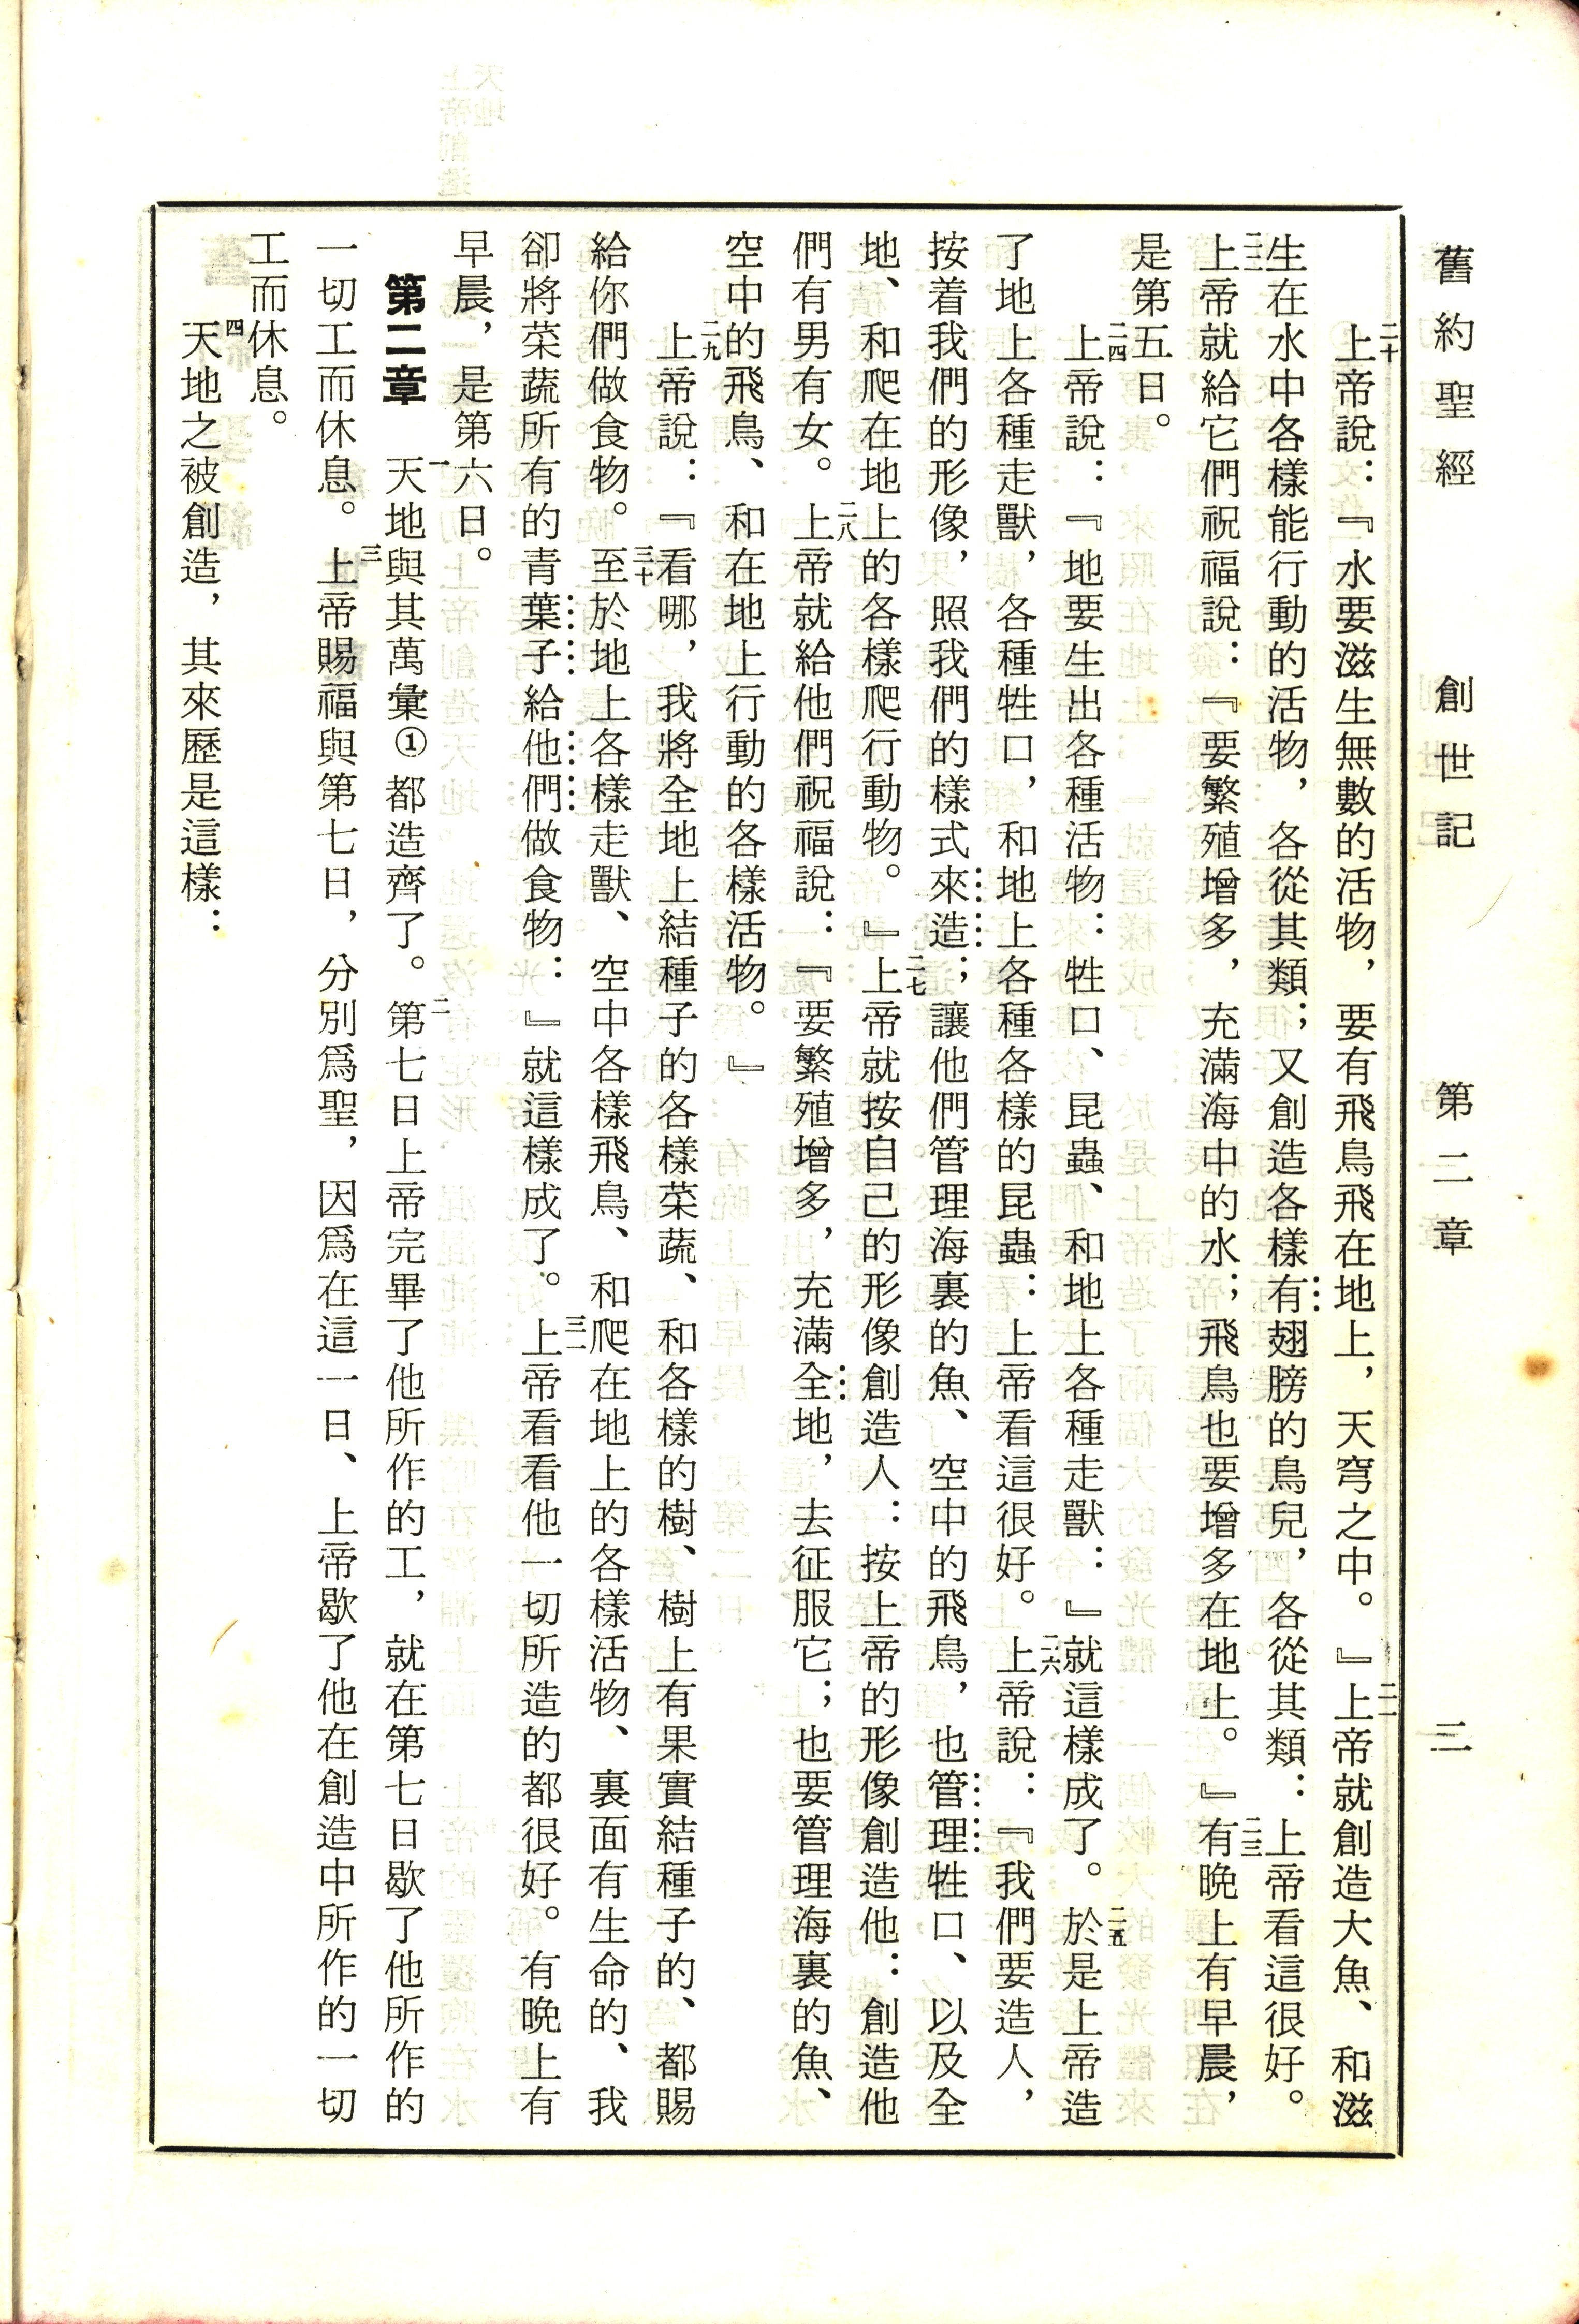 舊約聖經　創世記　第二章　二
二十上帝說：『水要滋生無數的活物，要有飛鳥飛在地上，天穹之中。』二一上帝就創造大魚、和滋
生在水中各樣能行動的活物，各從其類；又創造各樣有翅膀的鳥兒，各從其類：上帝看這很好。
二二上帝就給它們祝福說：『要繁殖增多，充滿海中的水；飛鳥也要增多在地上。』二三有晚上有早晨，
是第五日。
二四上帝說：『地要生出各種活物：牲口、昆蟲、和地上各種走獸：』就這樣成了。二五於是上帝造
了地上各種走獸，各種牲口，和地上各種各樣的昆蟲：上帝看這很好。二六上帝說：『我們要造人，
按着我們的形像，照我們的樣式來造；讓他們管理海裏的魚、空中的飛鳥，也管理牲口、以及全
地、和爬在地上的各樣爬行動物。』二七上帝就按自己的形像創造人：按上帝的形像創造他：創造他
們有男有女。二八上帝就給他們祝福說：『要繁殖增多，充滿全地，去征服它；也要管理海裏的魚、
空中的飛鳥、和在地上行動的各樣活物。』
二九上帝說：『看哪，我將全地上結種子的各樣菜蔬、和各樣的樹、樹上有果實結種子的、都賜
給你們做食物。三十至於地上各樣走獸、空中各樣飛鳥、和爬在地上的各樣活物、裏面有生命的、我
卻將菜蔬所有的青葉子給他們做食物：』就這樣成了。三一上帝看看他一切所造的都很好。有晚上有
早晨，是第六日。
第二章　一天地與其萬彙①都造齊了。二第七日上帝完畢了他所作的工，就在第七日歇了他所作的
一切工而休息。三上帝賜福與第七日，分別爲聖，因爲在這一日、上帝歇了他在創造中所作的一切
工而休息。
四天地之被創造，其來歷是這樣：